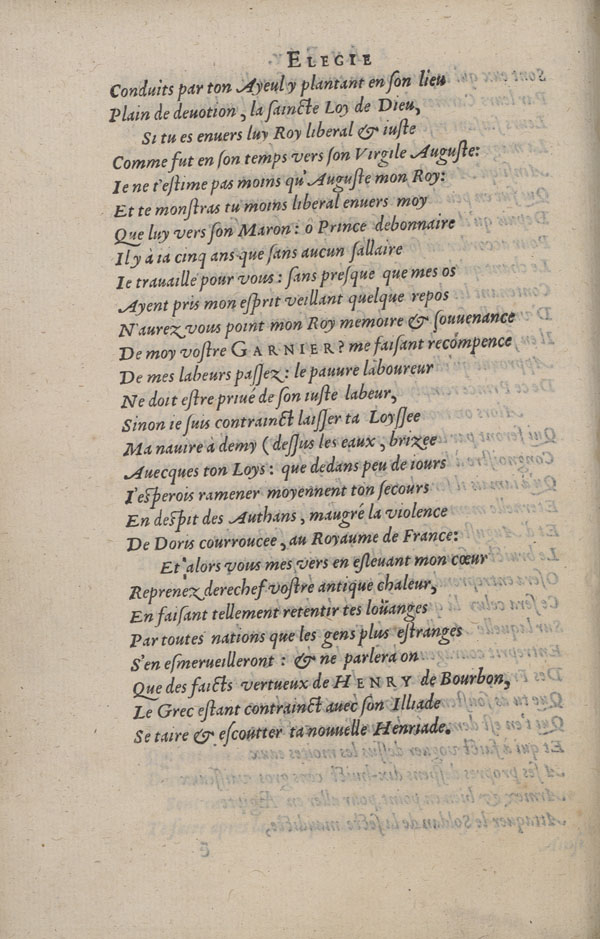 ELEGIE
Conduits par ton Ayeul y plantant en son lieu
Plain de deuotion, la saincte Loy de Dieu,
Si tu es enuers luy Roy liberal & iuste
Comme fut en son temps vers son Virgile Auguste:
Ie ne t'estime pas moins qu'Auguste mon Roy:
Et te monstras tu moins liberal enuers moy
Que luy vers son Maron: ô Prince debonnaire
Il y à ia cinq ans que sans aucun sallaire
Ie trauaille pour vous: sans presque que mes os
Ayent pris mon esprit veillant quelque repos
N'aurez vous point mon Roy memoire & souuenance
De moy vostre GARNIER? me faisant recõpence
De mes labeurs passez: le pauure laboureur
Ne doit estre priué de son iuste labeur,
Sinon ie suis contrainct laisser ta Loyssee
Ma nauire à demy (dessus les eaux, brizee
Auecques ton Loys: que dedans peu de iours
I'esperois ramener moyennent ton secours
En despit des Authans, maugré la violence
De Doris courroucee, au Royaume de France:
Et alors vous mes vers en esleuant mon cœur
Reprenez derechef vostre antique chaleur,
En faisant tellement retentir tes loüanges
Par toutes nations que les gens plus estranges
S'en esmerueilleront: & ne parlera on
Que des faicts vertueux de HENRY de Bourbon,
Le Grec estant contrainct auec son Illiade
Se taire & escoutter ta nouuelle Henriade.